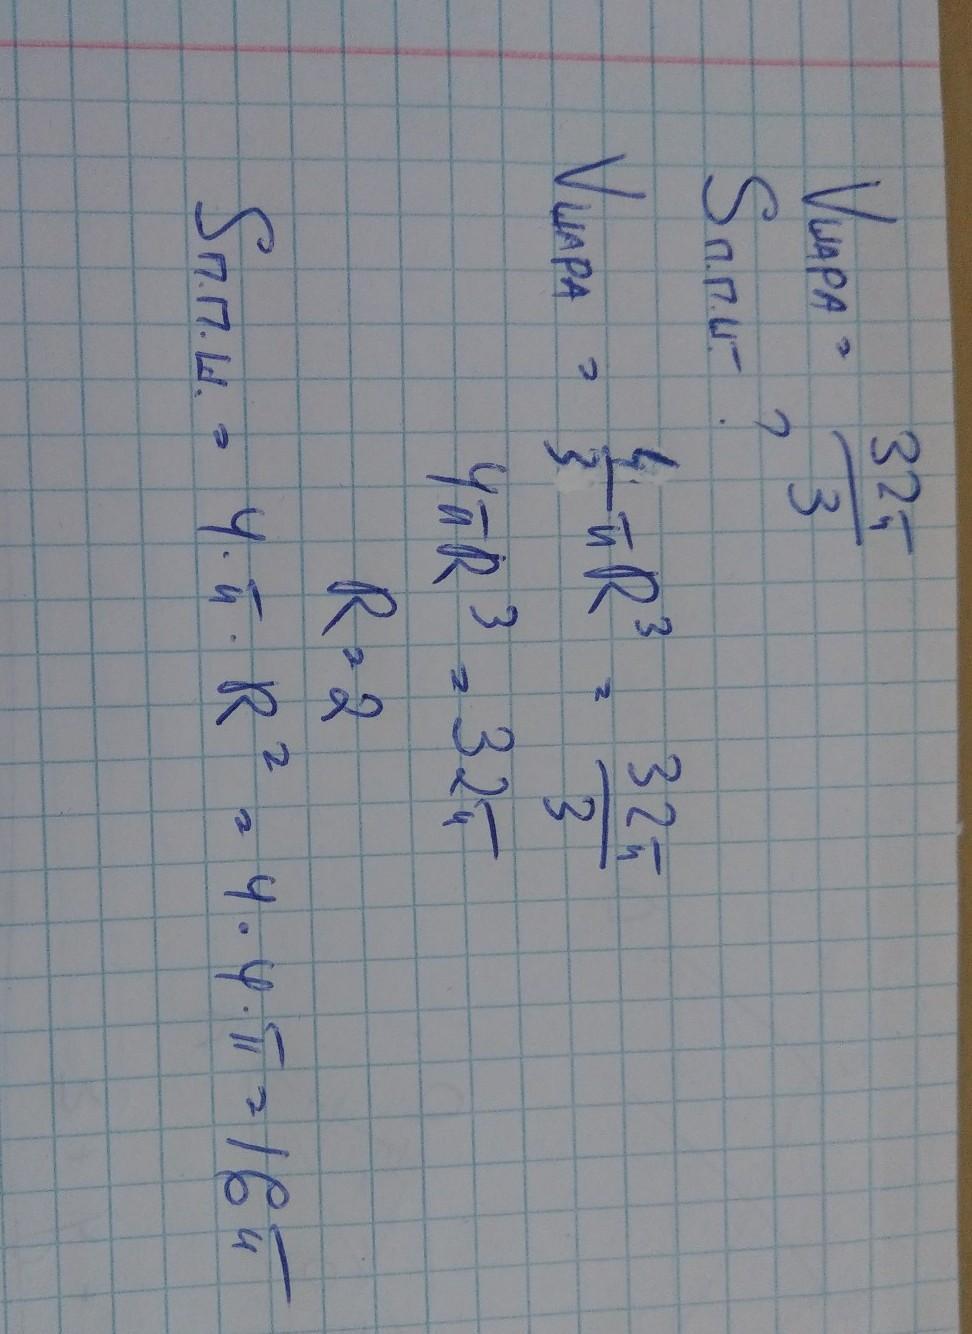 Vшара = 32π/3
Sп.п.ш. - ?
Vшара = 4/3 πR³ = 32π/3
4πR³ = 32π
R = 2
Sп.п.ш. = 4·π·R² = 4·4·π = 16π